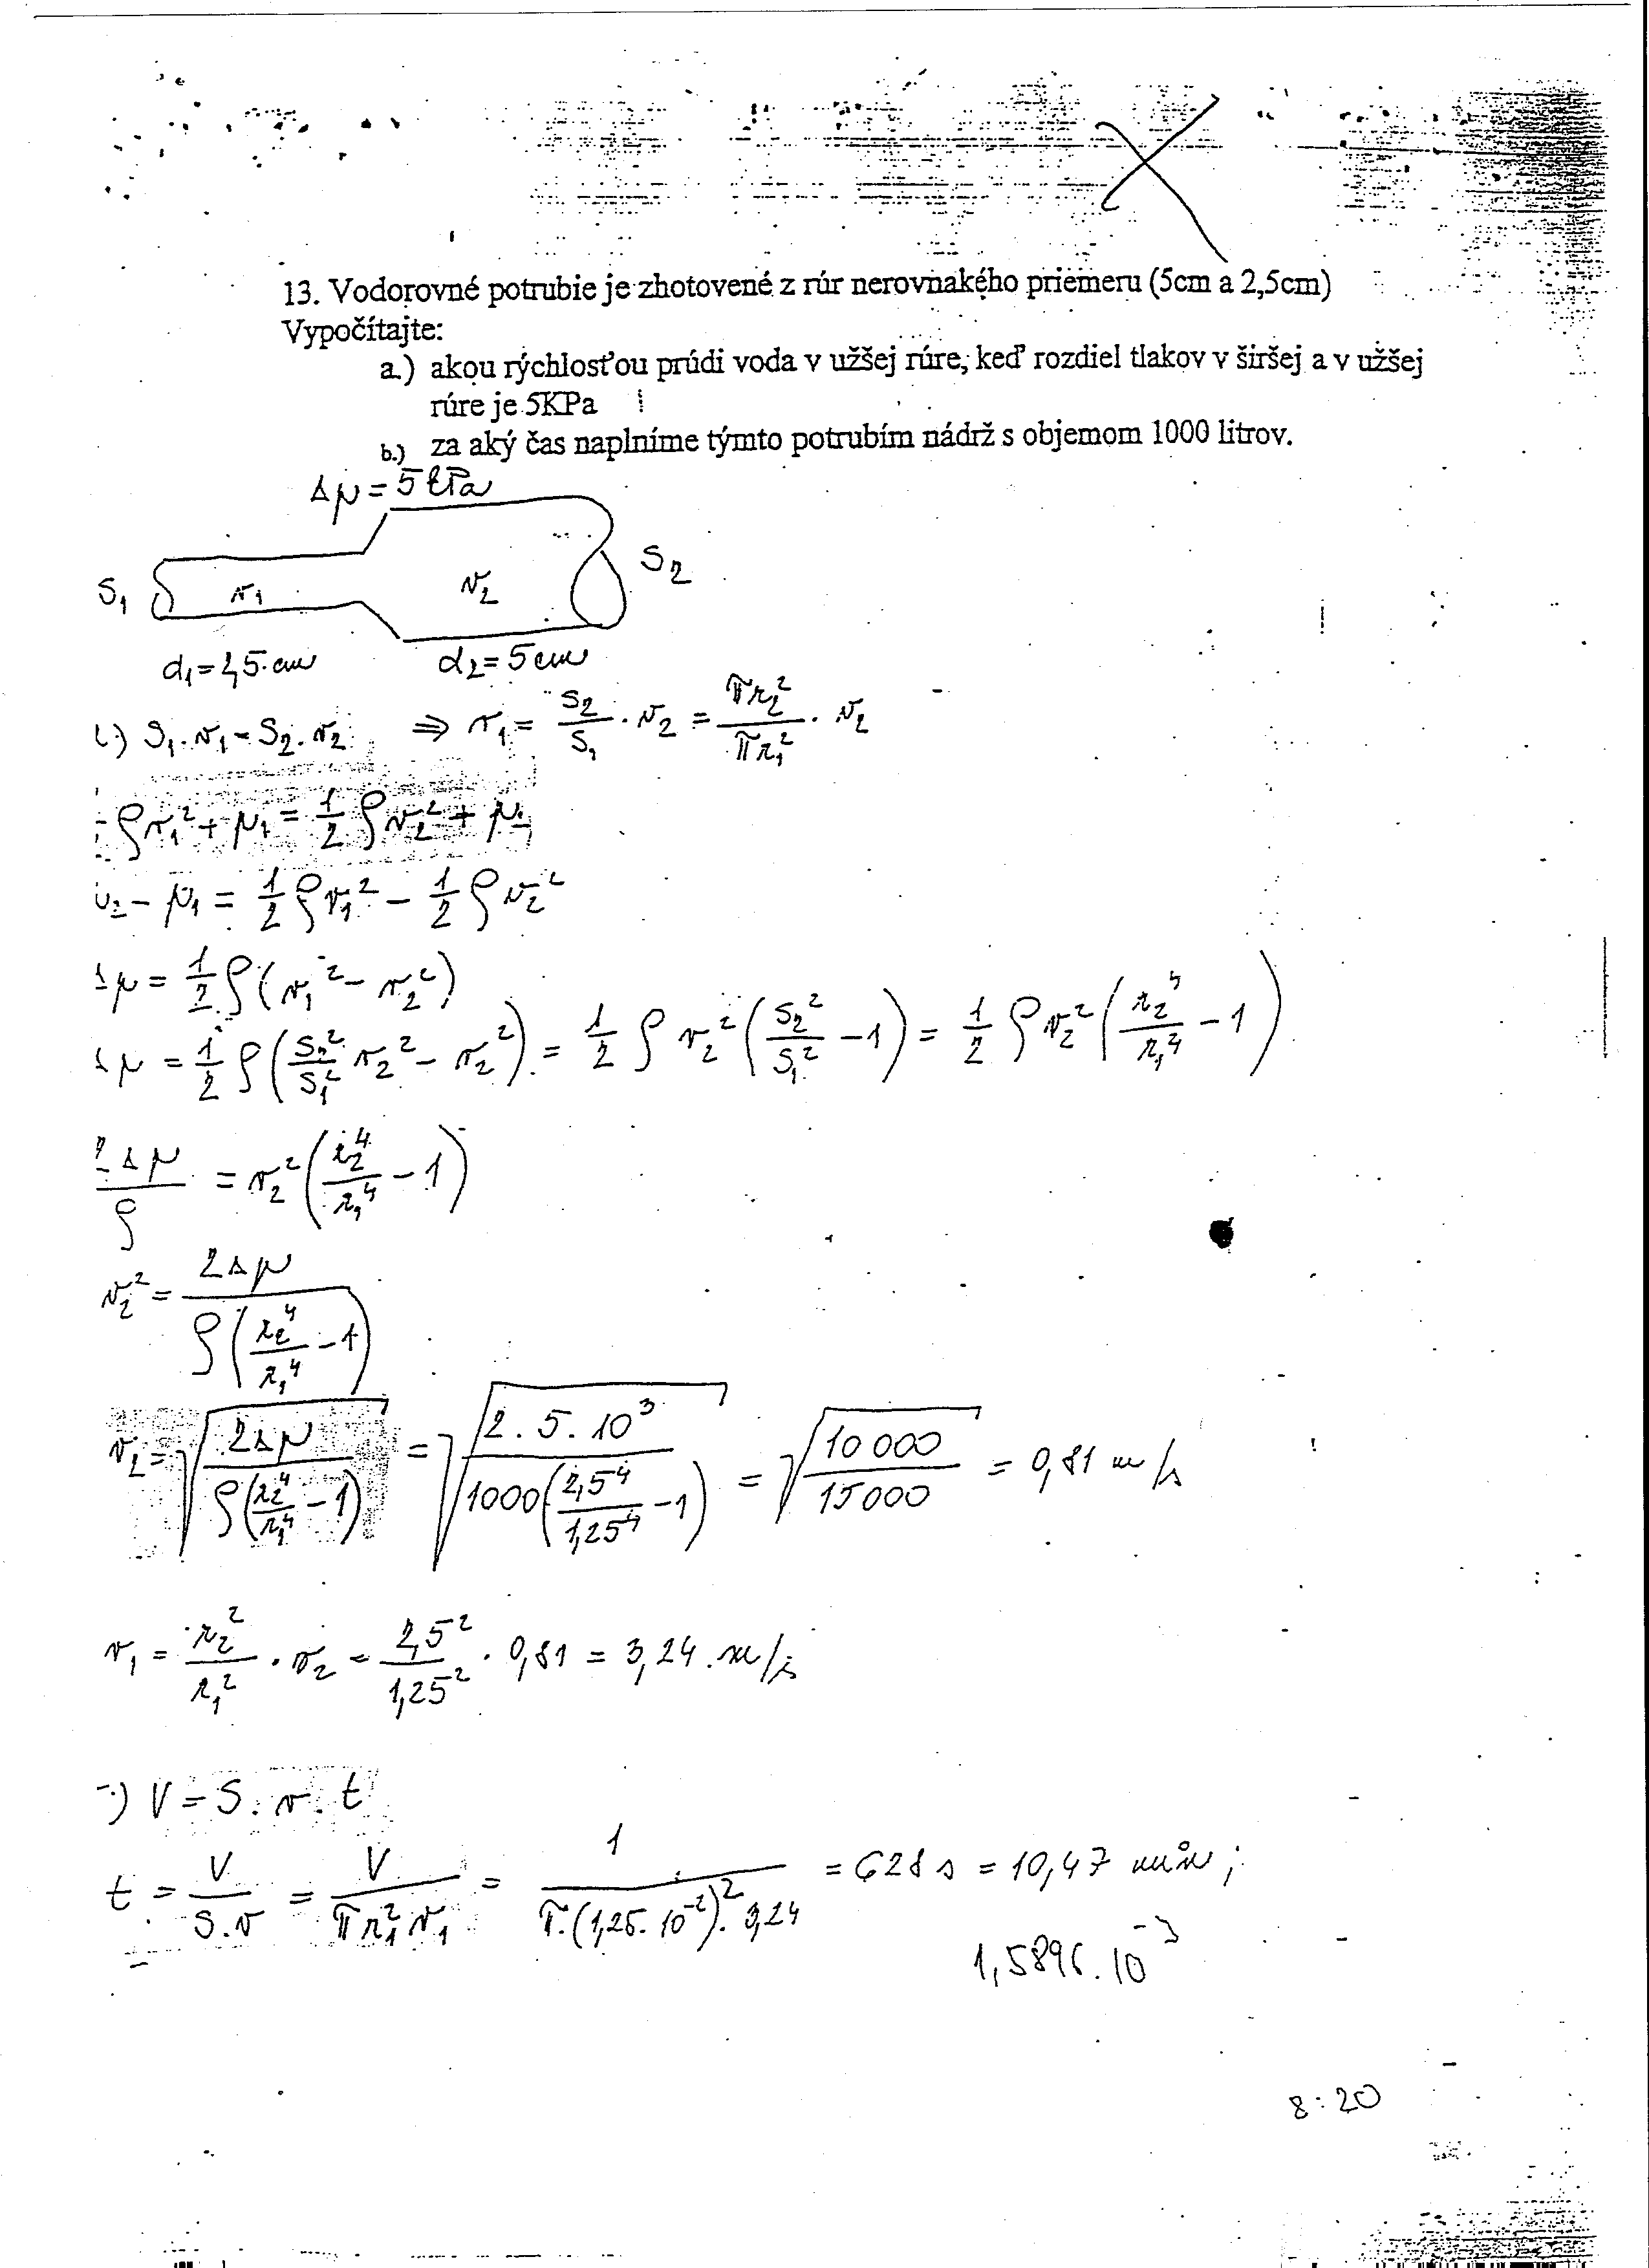 13. Vodorovné potrubie je zhotovené z rúr nerovnakého priemeru (5cm a 2,5cm)
Vypočítajte:
a.) akou rýchlosťou prúdi voda v užšej rúre, keď rozdiel tlakov v širšej a v užšej
rúre je 5KPa
b.) za aký čas naplníme týmto potrubím nádrž s objemom 1000 litrov.
Δp = 5 kPa
S₁ v₁ v₂ S₂
d₁ = 2,5 cm d₂ = 5 cm
S₁ . v₁ = S₂ . v₂ ⇒ v₁ = S₂/S₁ . v₂ = πr₂²/πr₁² . v₂
ρv₁² + p₁ = 1/2 ρv₂² + p₂
p₂ - p₁ = 1/2 ρv₁² - 1/2 ρv₂²
Δp = 1/2 ρ(v₁² - v₂²)
Δp = 1/2 ρ(S₂²/S₁² v₂² - v₂²) = 1/2 ρv₂²(S₂²/S₁² - 1) = 1/2 ρv₂²(r₂⁴/r₁⁴ - 1)
2Δp/ρ = v₂²(r₂⁴/r₁⁴ - 1)
v₂² = 2Δp/ρ(r₂⁴/r₁⁴ - 1)
v₂ = √(2Δp/ρ(r₂⁴/r₁⁴ - 1)) = √(2 . 5 . 10³/1000(2,5⁴/1,25⁴ - 1)) = √(10 000/15000) = 0,81 m/s
v₁ = r₂²/r₁² . v₂ = 2,5²/1,25² . 0,81 = 3,24 m/s
) V = S . v . t
t = V/S.v = V/πr₁²v₁ = 1/π.(1,25.10⁻²)².3,24 = 628 s = 10,47 min ;
1,5896.10⁻³
8:20